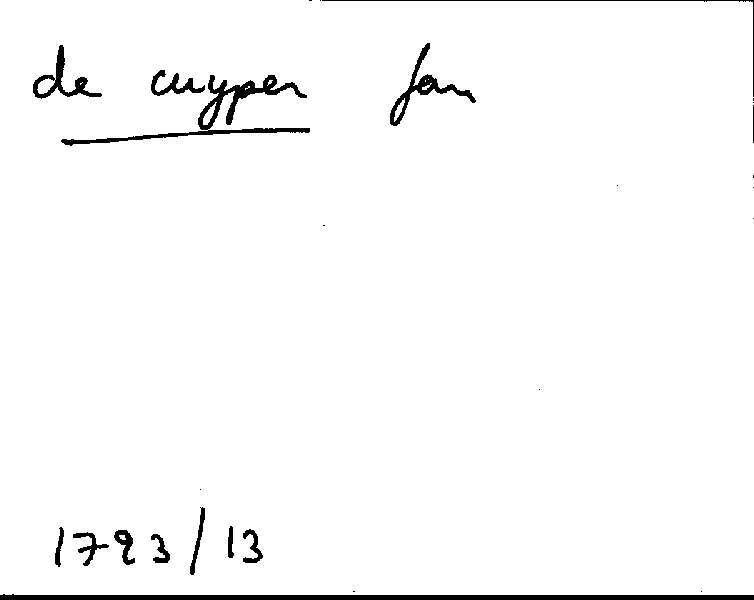 de cuyper Jan
1793/13